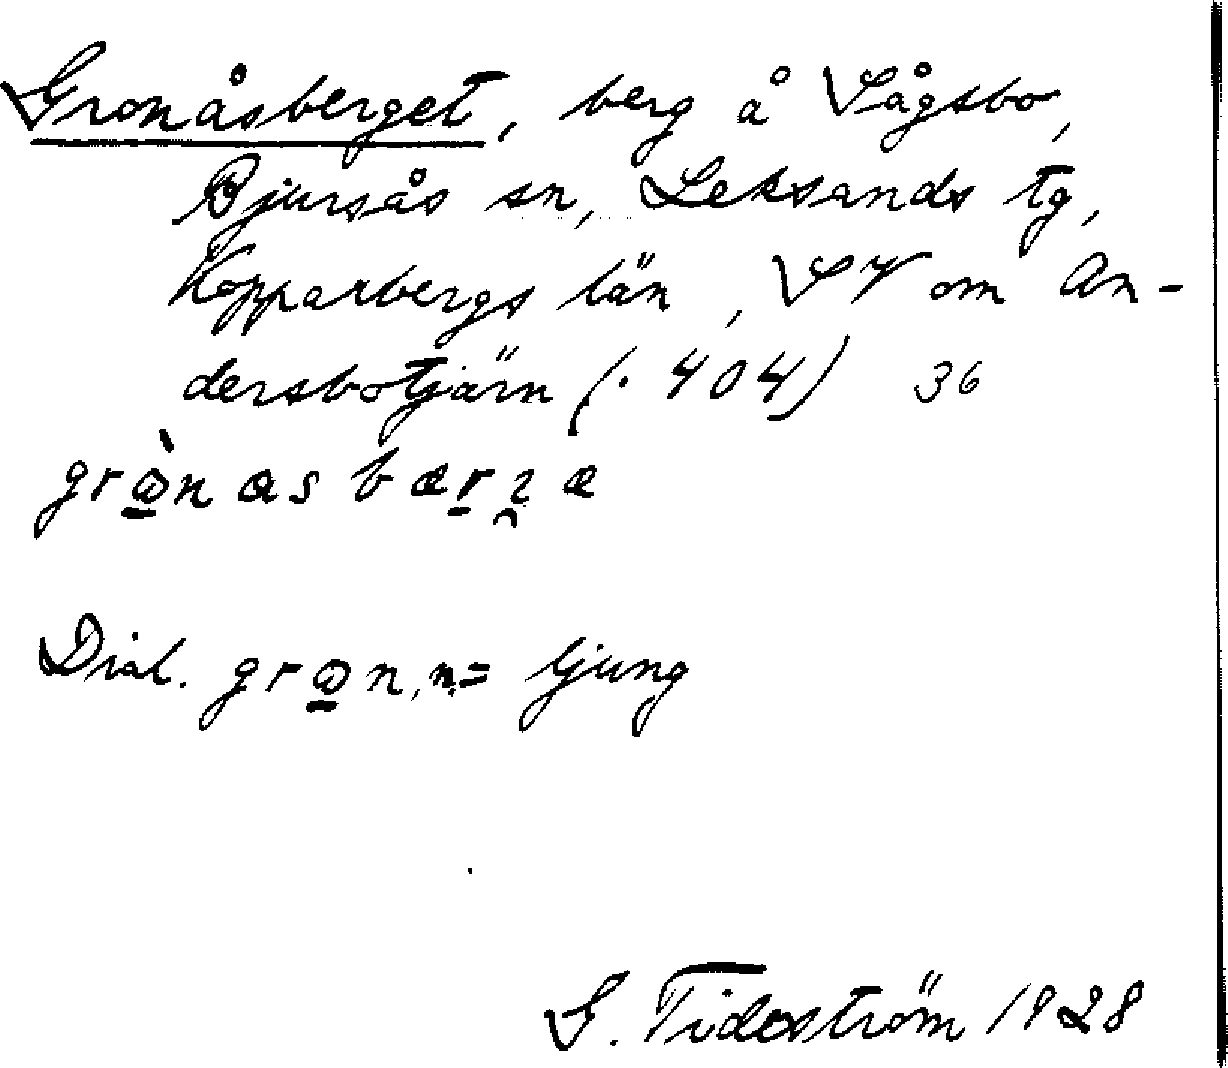 Gronåsberget, berg å Sågsbo,
Bjursås sn, Leksands tg,
Kopparbergs län, SV om An-
dersbotjärn (. 404) 36
grò̱nasbæṟʑæ
Dial. gro̱n, n. = ljung
G. Tideström 1928